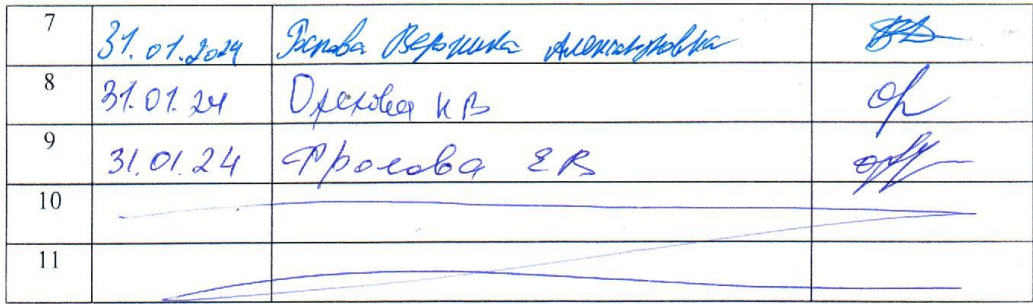 7 31.01.2024 Вероника Александровна
8 31.01.24 Орехова К В
9 31.01.24 Фролова Е В
10
11